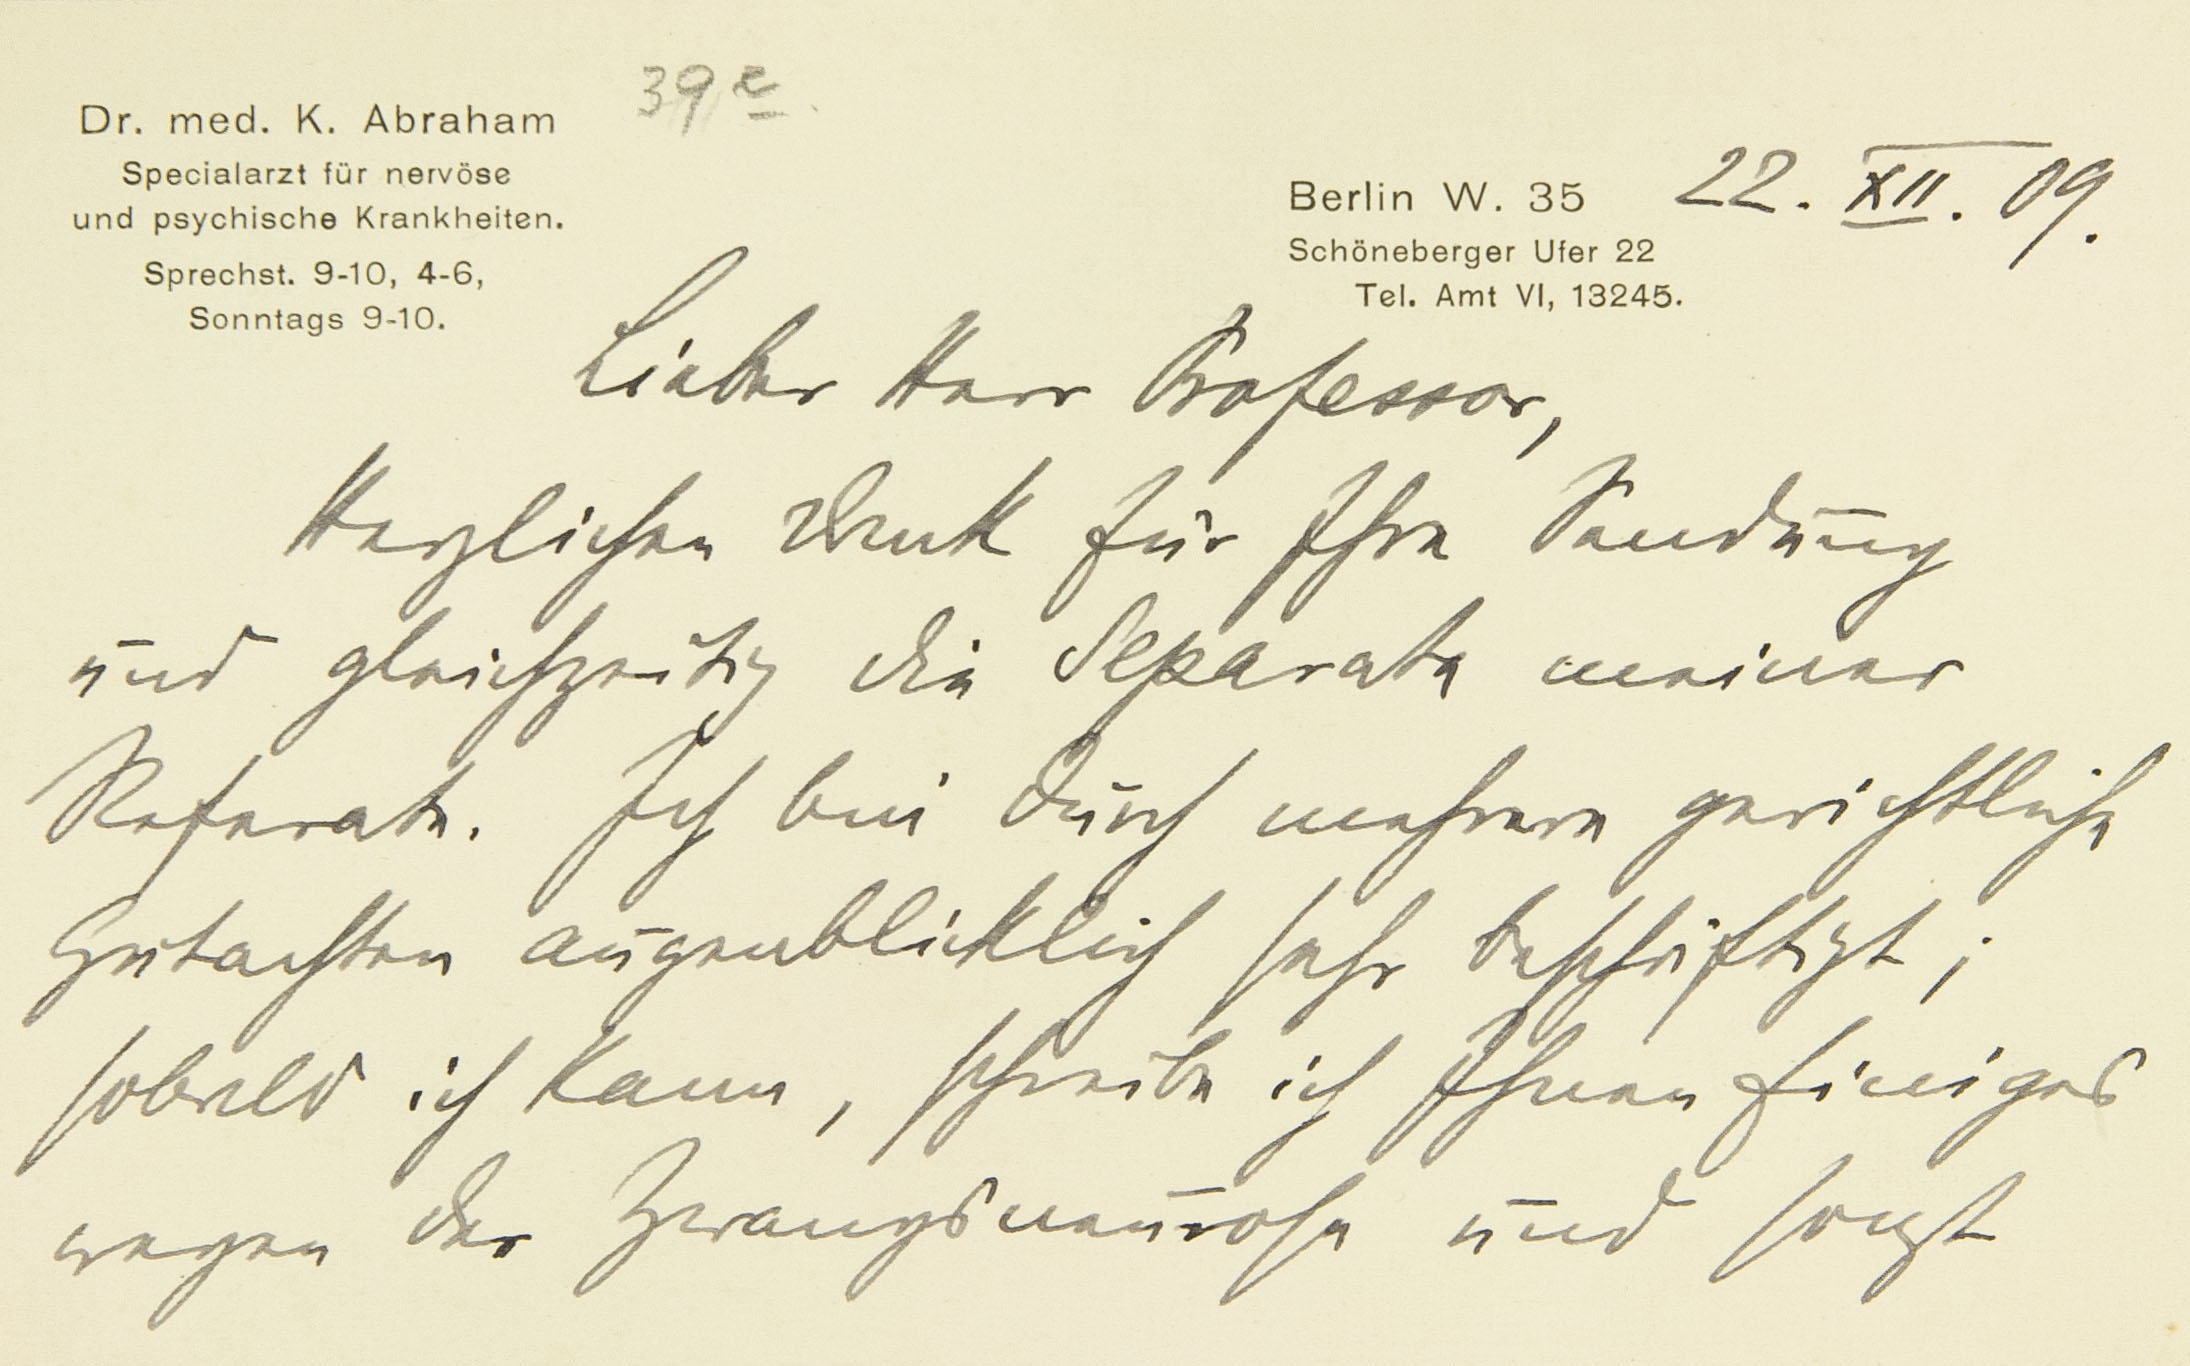 39 a
Dr. med. K. Abraham
Specialarzt für nervöse
und psychische Krankheiten.
Sprechst. 9-10, 4-6,
Sonntags 9-10.
Berlin W. 35 22. XII. 09.
Schöneberger Ufer 22
Tel. Amt VI, 13245.
Lieber Herr Professor,
Herzlichen Dank für Ihre Sendung
und gleichzeitig die Separata meiner
Referate. Ich bin durch mehrere gerichtliche
Gutachten augenblicklich sehr beschäftigt;
sobald ich kann, schreibe ich Ihnen Einiges
wegen der Zwangsneurose und sonst